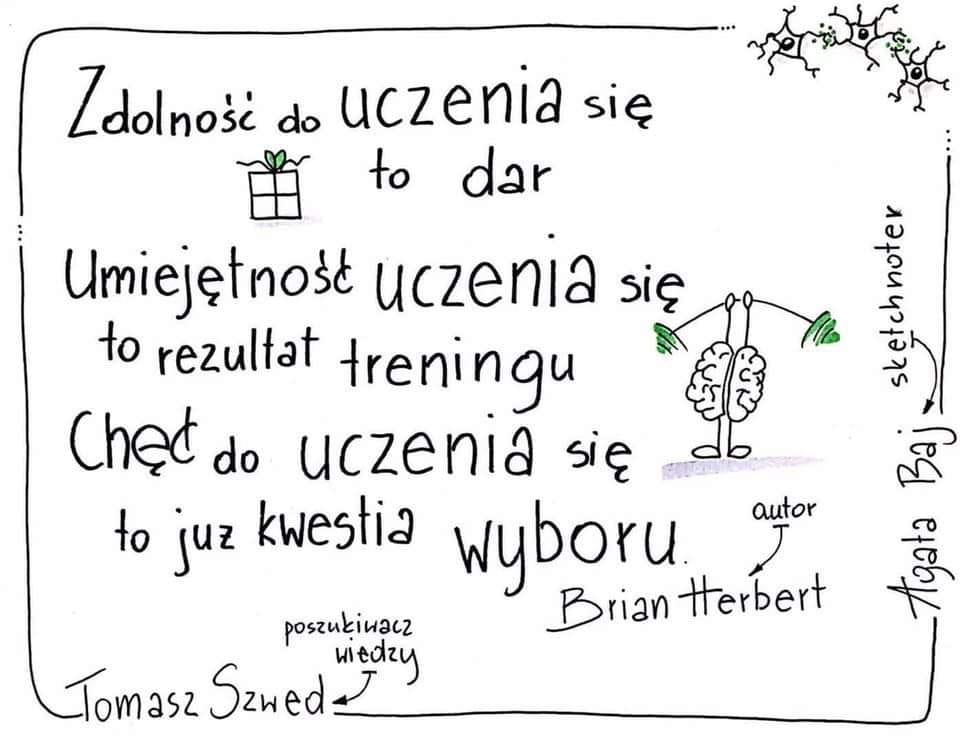 Zdolność do uczenia się
to dar
Umiejętność uczenia się
to rezultat treningu
Chęć do uczenia się
to już kwestia wyboru.
autor
Brian Herbert
poszukiwacz
wiedzy
Tomasz Szwed
sketchnoter
Agata Baj